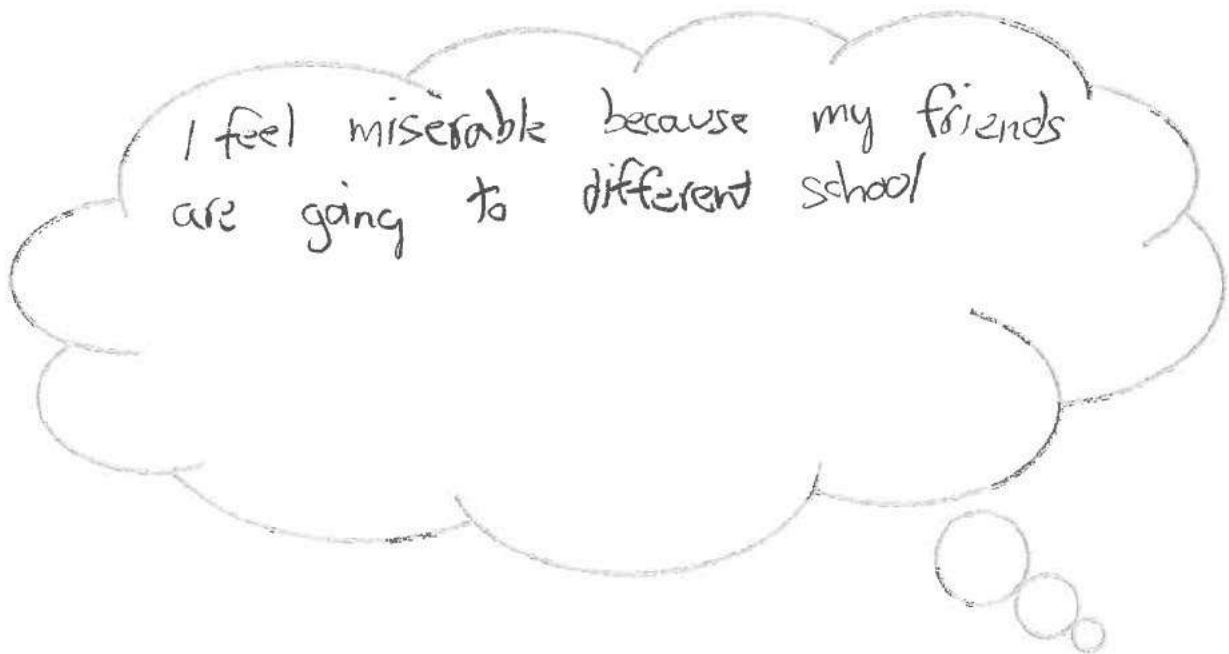 I feel miserable because my friends
are going to different school